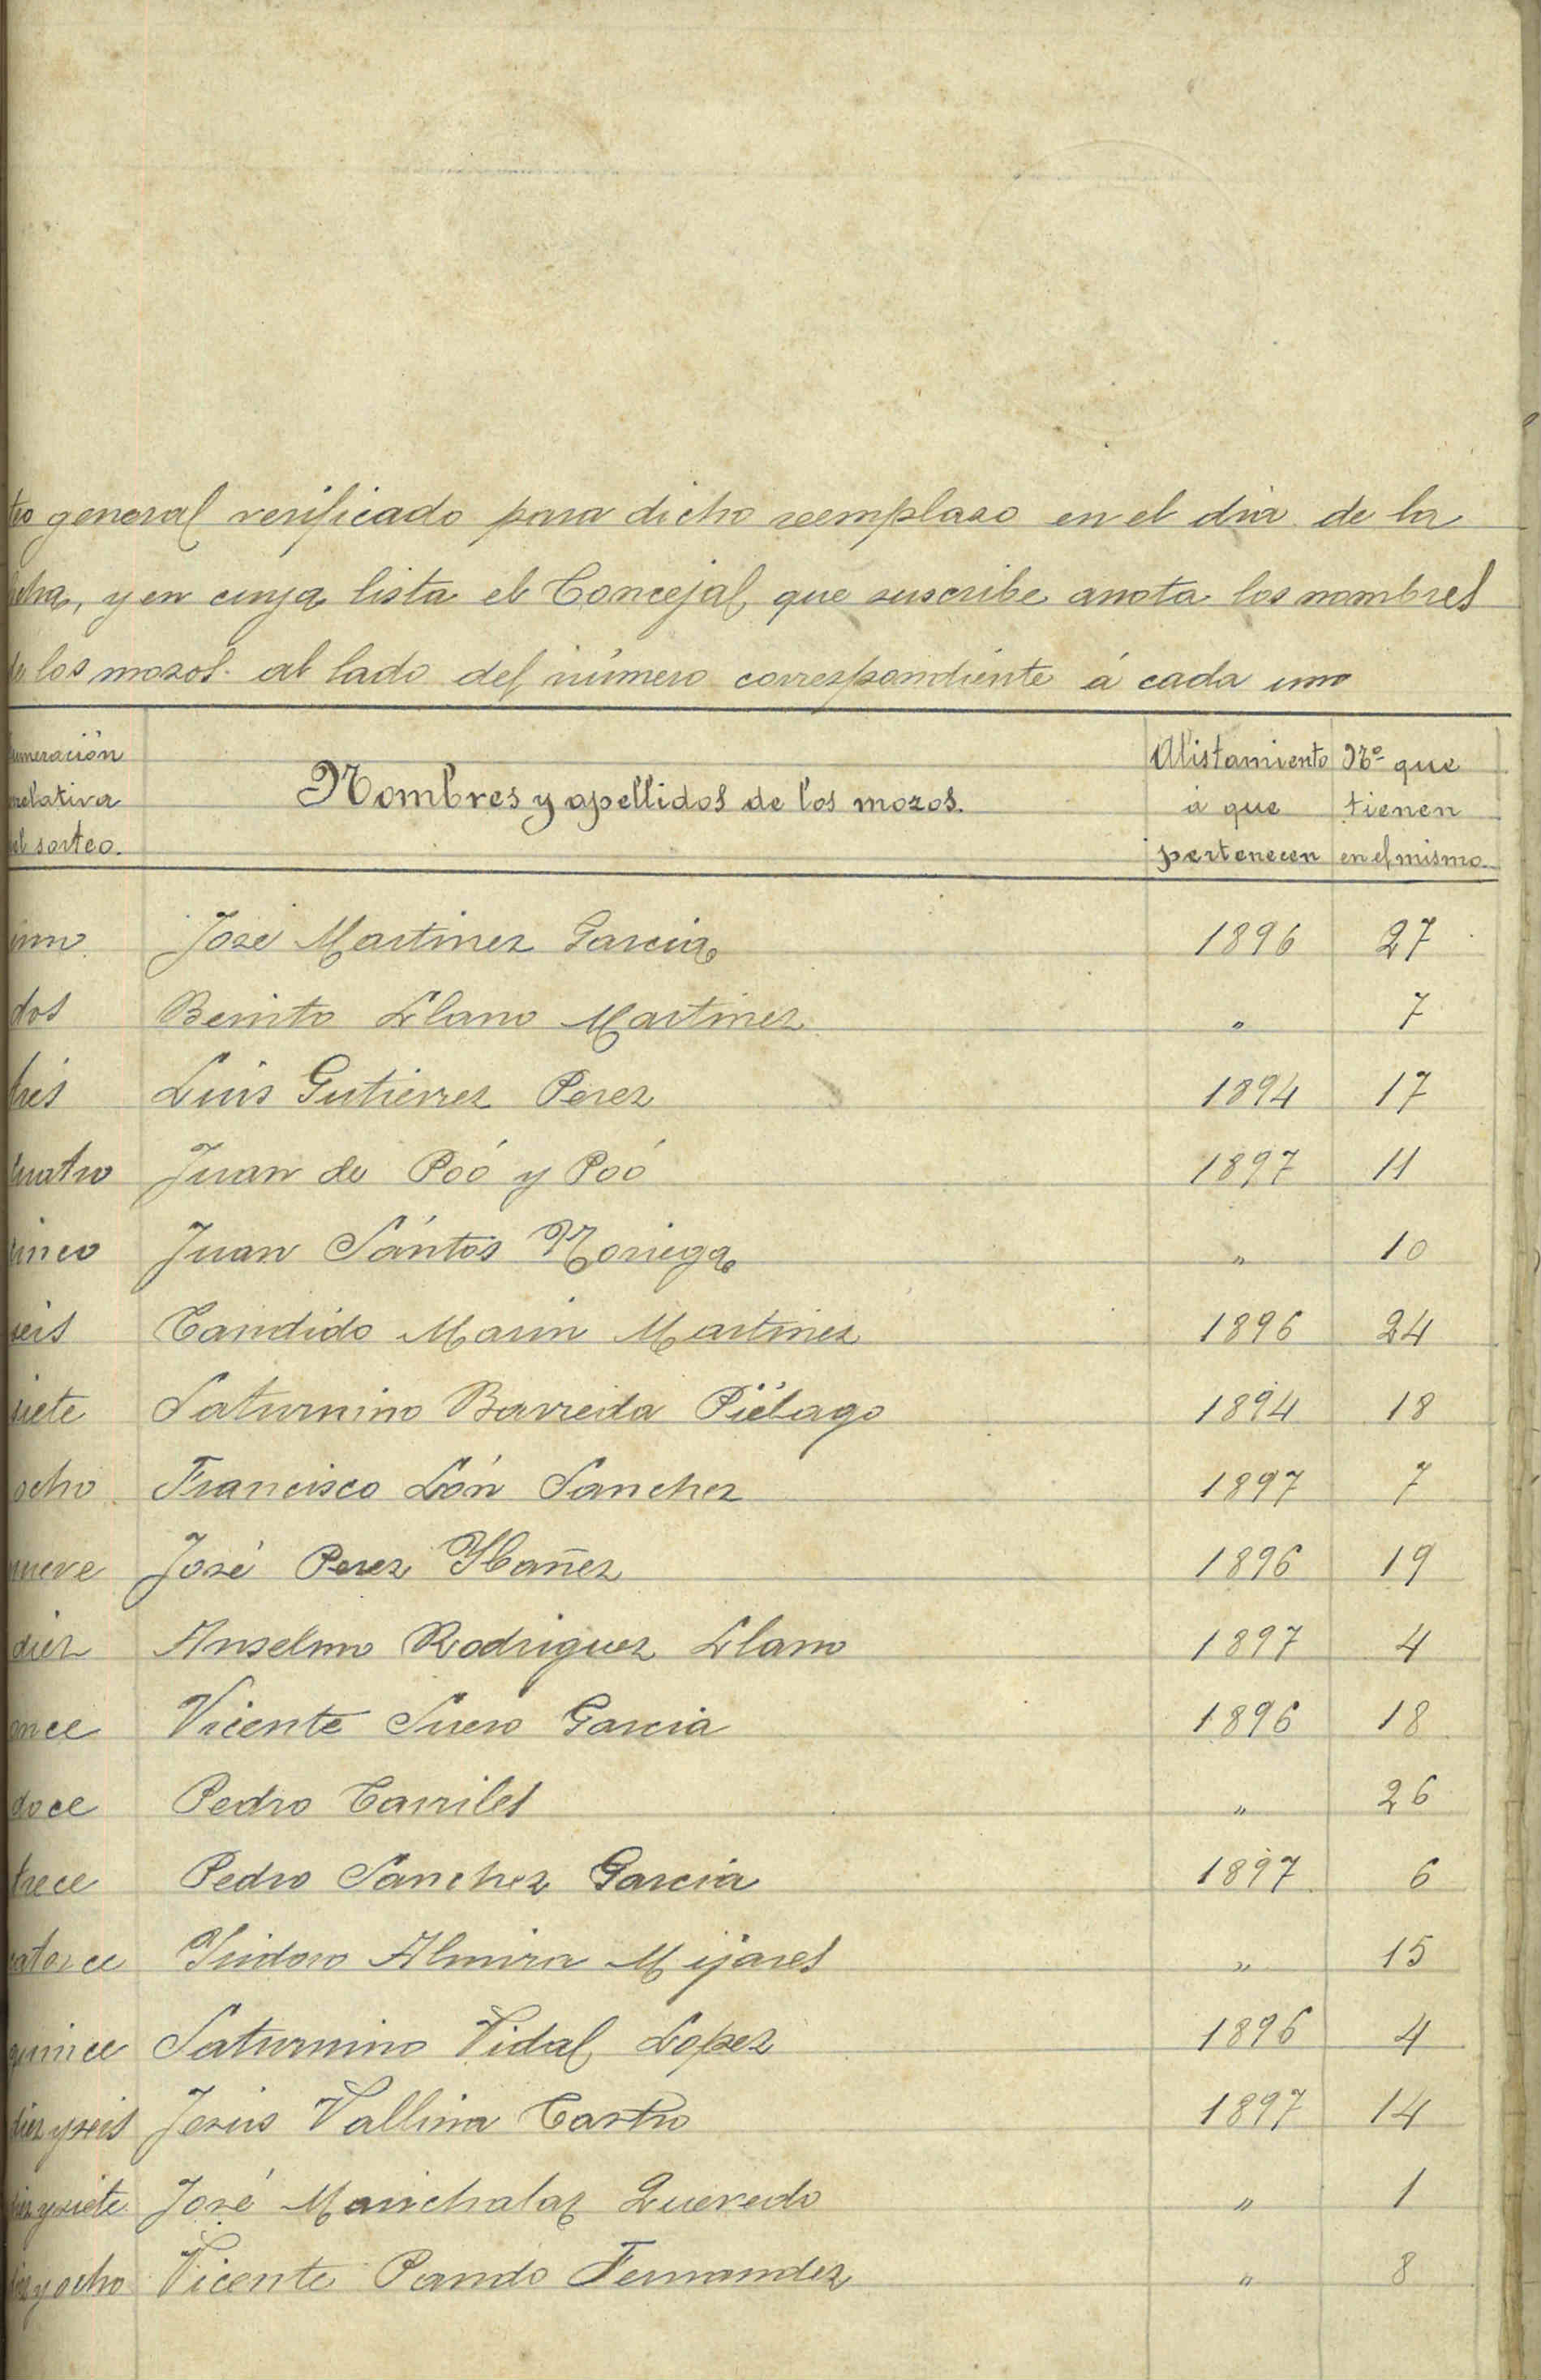 teo general verificado para dicho reemplazo en el dia de la
fecha, y en cuya lista el Concejal que suscribe anota los nombres
de los mozos al lado del número correspondiente á cada uno
numeración relativa del sorteo. Nombres y apellidos de los mozos. Alistamiento á que pertenecen Nº que tienen en el mismo
uno José Martinez Garcia 1896 27
dos Benito Llano Martinez " 7
tres Luis Gutierrez Perez 1894 17
cuatro Juan de Poó y Poó 1897 11
cinco Juan Sántos Noriega " 10
seis Candido Marin Martinez 1896 24
siete Saturnino Barreda Piélago 1894 18
ocho Francisco Lón Sanchez 1897 7
nueve José Perez Ybañez 1896 19
diez Anselmo Rodriguez Llano 1897 4
once Vicente Suero Garcia 1896 18
doce Pedro Carriles " 26
trece Pedro Sanchez Garcia 1897 6
catorce Ysidoro Almira Mijares " 15
quince Saturnino Vidal Lopez 1896 4
diez y seis Jesús Vallina Castro 1897 14
diez y siete José Marichalar Quevedo " 1
diez y ocho Vicente Pando Fernandez " 8